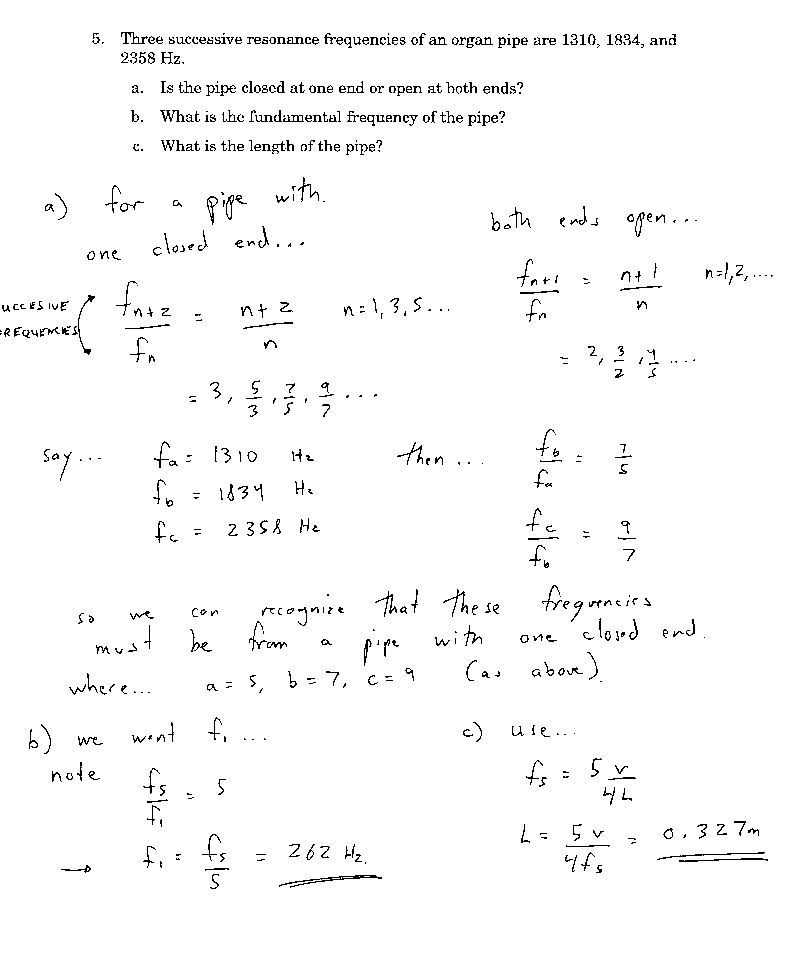 5. Three successive resonance frequencies of an organ pipe are 1310, 1834, and
2358 Hz.
a. Is the pipe closed at one end or open at both ends?
b. What is the fundamental frequency of the pipe?
c. What is the length of the pipe?
a) for a pipe with.
one closed end...
UCCESIVE
REQUENCIES
f_{n+2}/f_n = (n+2)/n n=1,3,5...
= 3, 5/3, 7/5, 9/7 ...
both ends open...
f_{n+1}/f_n = (n+1)/n n=1,2,....
= 2, 3/2, 4/5 ....
say... f_a = 1310 Hz
f_b = 1834 Hz
f_c = 2358 Hz
then... f_b/f_a = 7/5
f_c/f_b = 9/7
so we can recognize that these frequencies
must be from a pipe with one closed end.
where... a = 5, b = 7, c = 9 (as above).
b) we want f_1 ...
note f_5/f_1 = 5
→ f_1 = f_5/5 = 262 Hz.
c) use...
f_5 = 5 v/4L
L = 5v/4f_5 = 0.327m